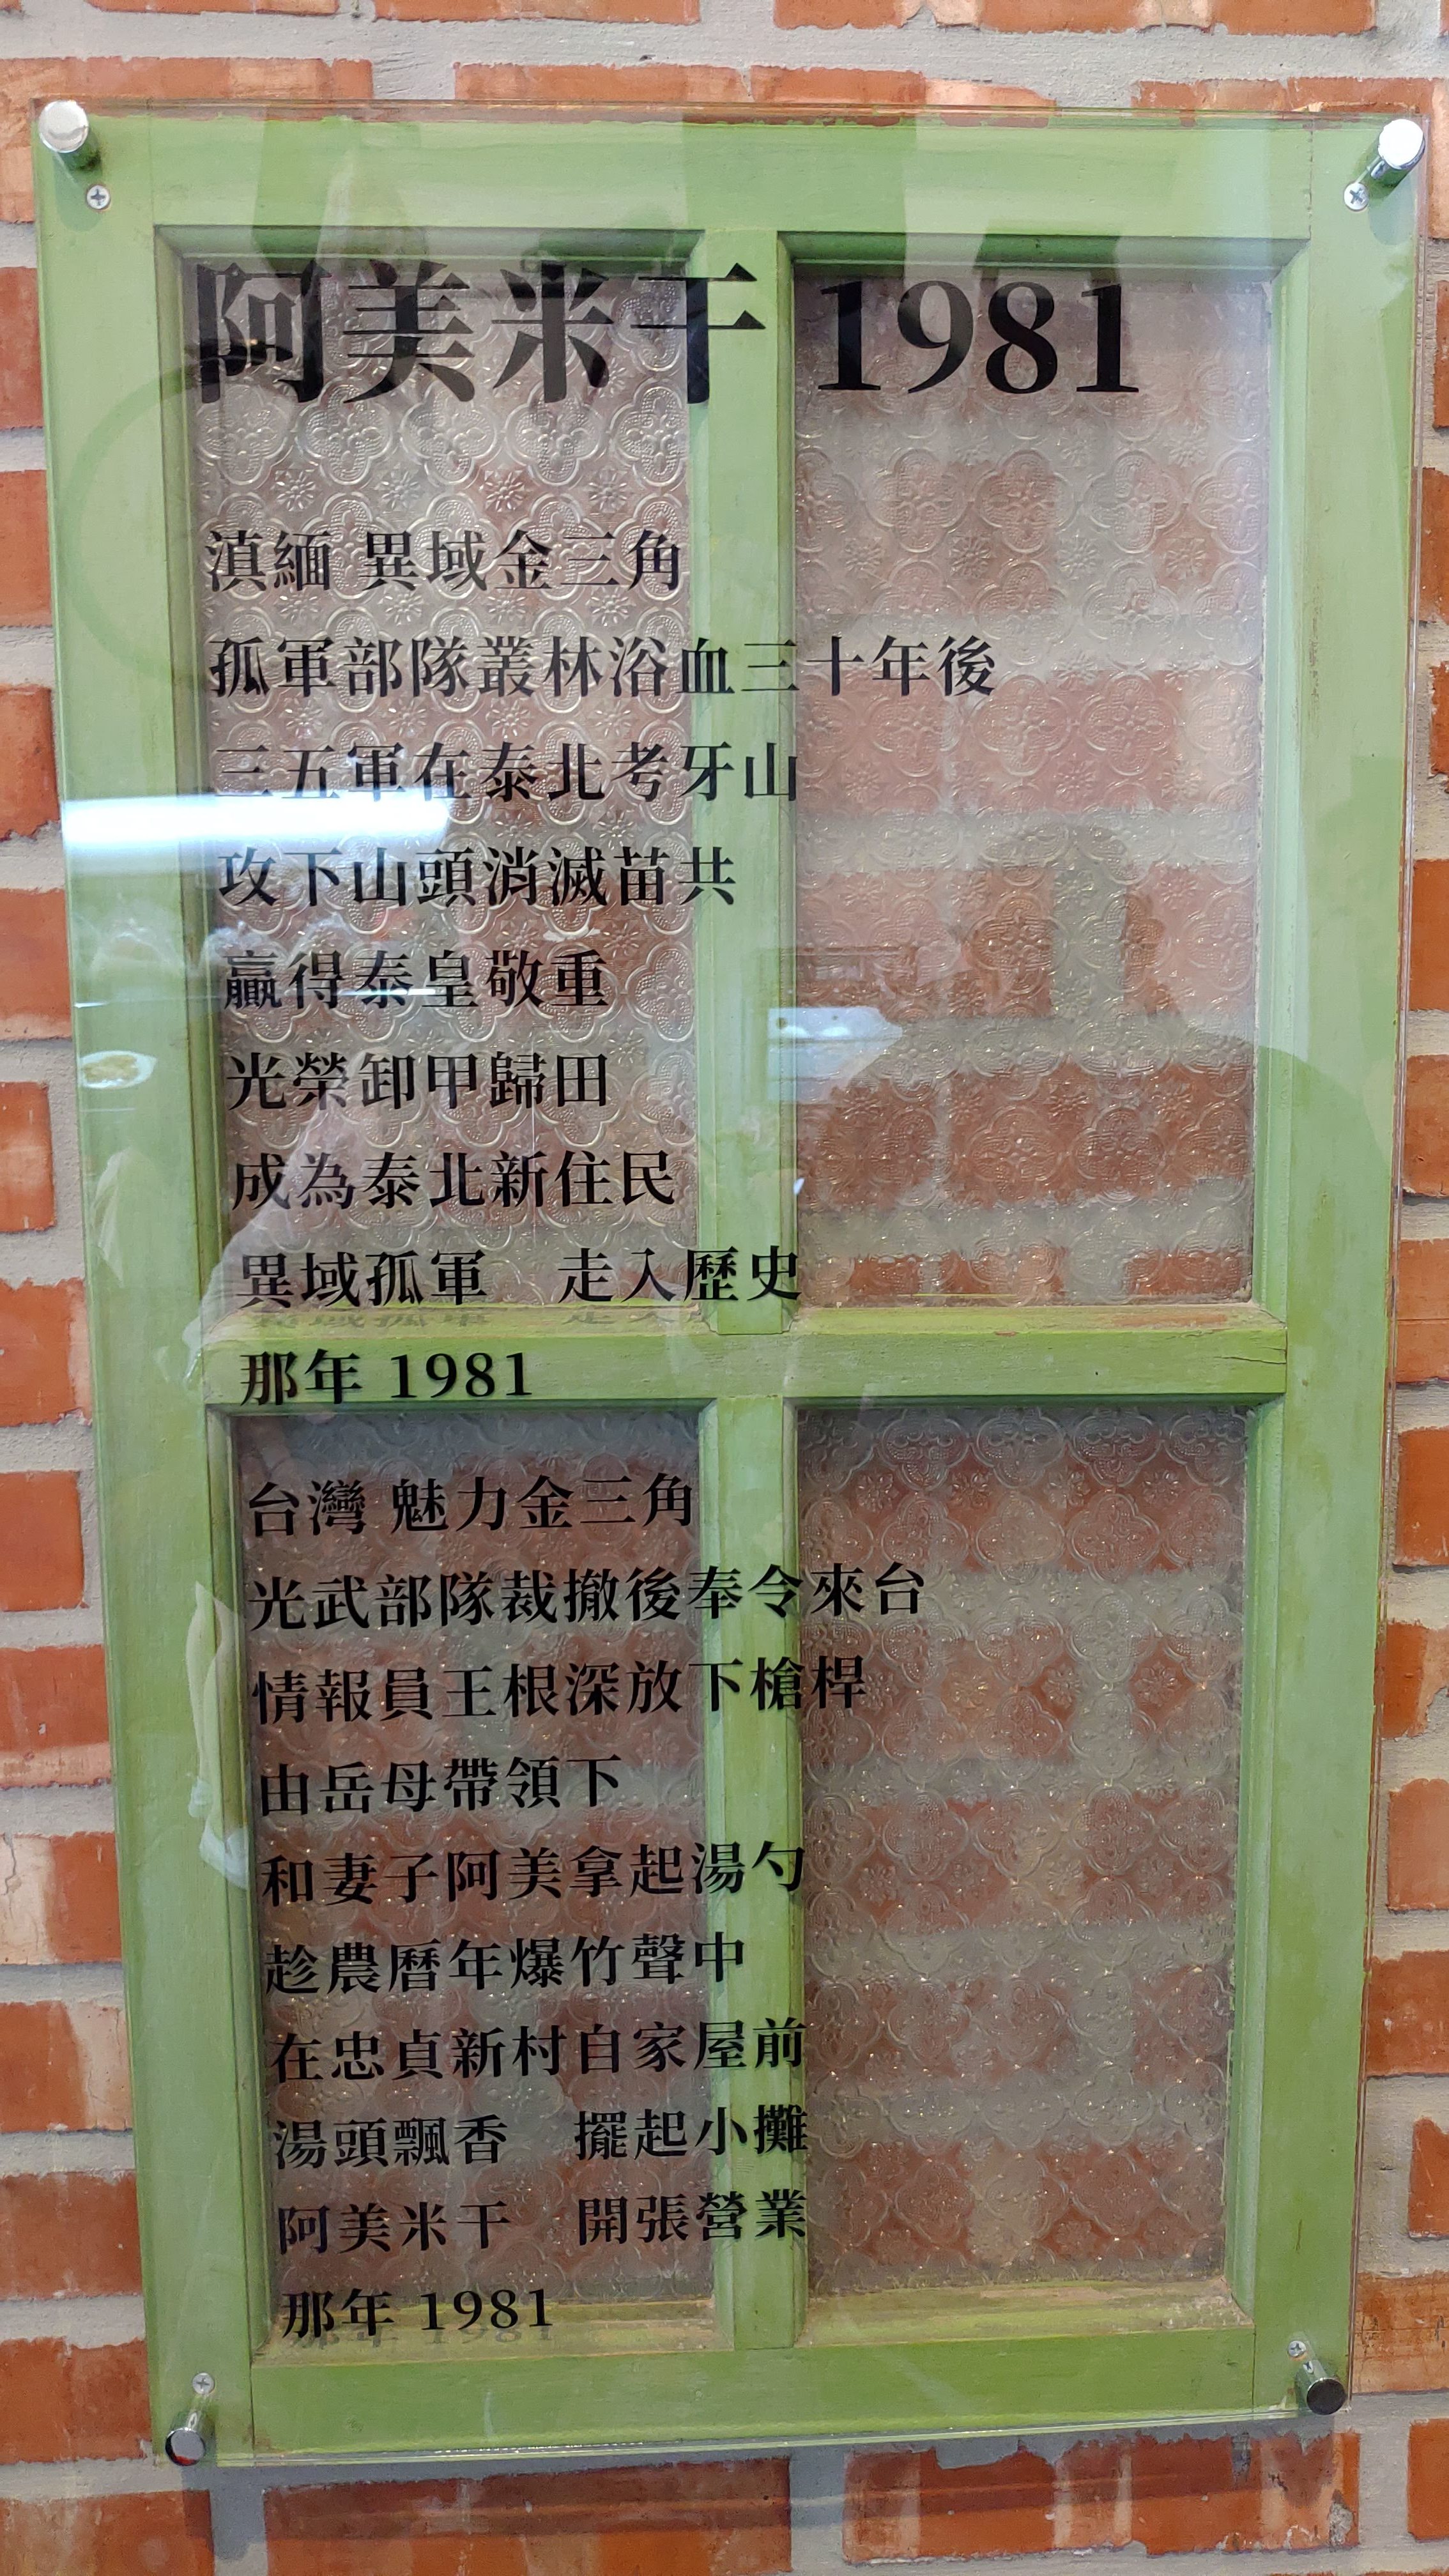 阿美米干 1981
滇緬 異域金三角
孤軍部隊叢林浴血三十年後
三五軍在泰北考牙山
攻下山頭消滅苗共
贏得泰皇敬重
光榮卸甲歸田
成為泰北新住民
異域孤軍　走入歷史
那年 1981
台灣 魅力金三角
光武部隊裁撤後奉令來台
情報員王根深放下槍桿
由岳母帶領下
和妻子阿美拿起湯勺
趁農曆年爆竹聲中
在忠貞新村自家屋前
湯頭飄香　擺起小攤
阿美米干　開張營業
那年 1981